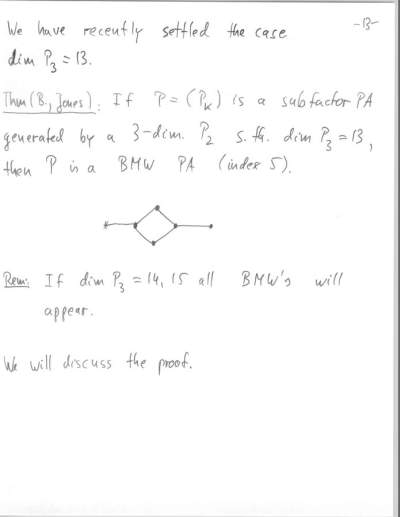 -13-
We have recently settled the case
dim P₃ = 13.
Thm (B., Jones): If P = (Pₖ) is a subfactor PA
generated by a 3-dim. P₂ s.th. dim P₃ = 13,
then P is a BMW PA (index 5).
*
Rem: If dim P₃ = 14, 15 all BMW's will
appear.
We will discuss the proof.